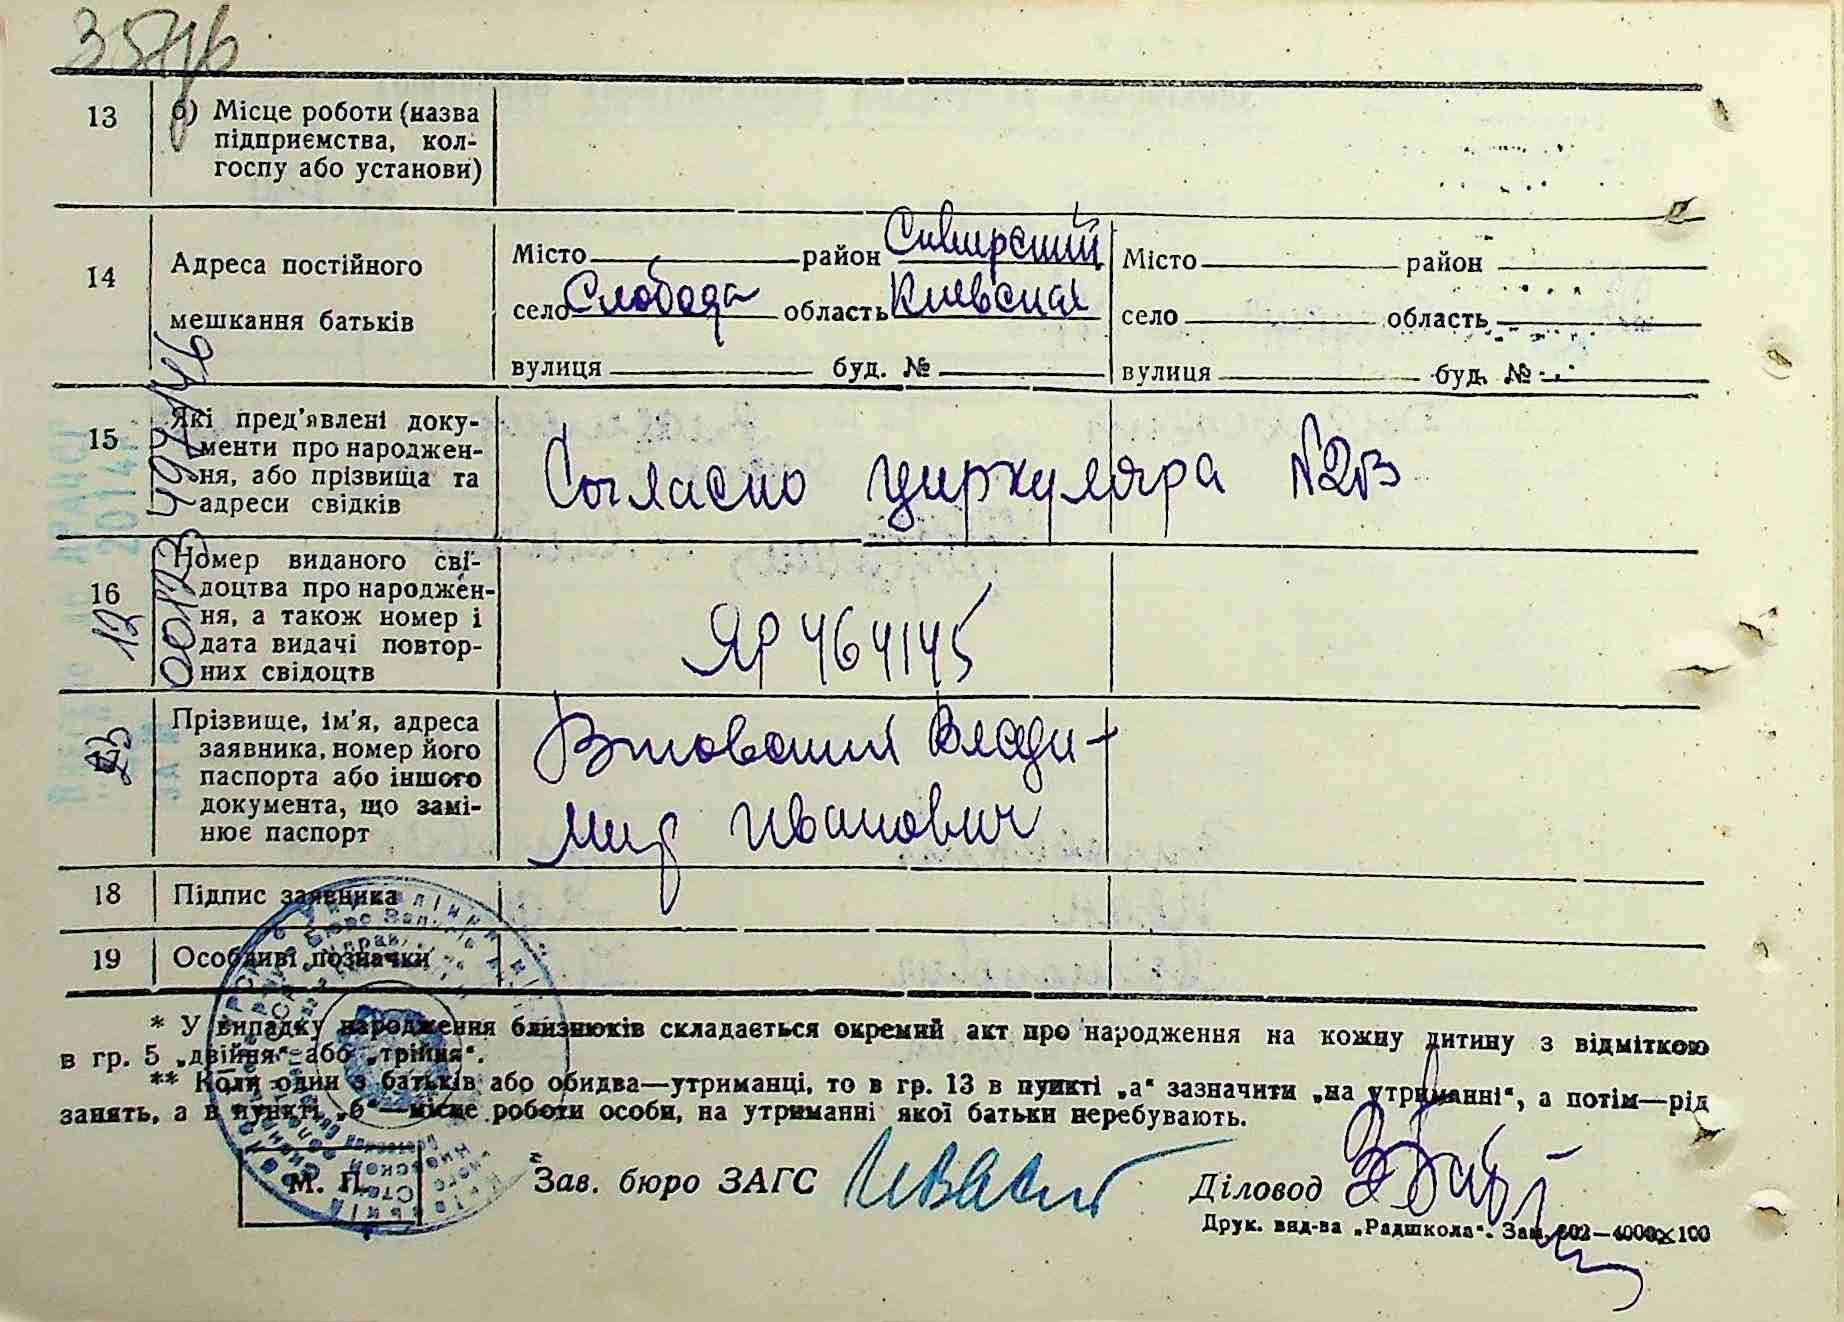 13 б) Місце роботи (назва
підприємства, кол-
госпу або установи)
14 Адреса постійного
мешкання батьків
Місто район Сквирский
село Слобода область Киевская
вулиця буд. №
Місто район
село область
вулиця буд. №
15 Які пред'явлені доку-
менти про народжен-
ня, або прізвища та
адреси свідків
Согласно циркуляра №23
16 Номер виданого сві-
доцтва про народжен-
ня, а також номер і
дата видачі повтор-
них свідоцтв
ЯР 464145
Прізвище, ім'я, адреса
заявника, номер його
паспорта або іншого
документа, що замі-
нює паспорт
Влади-
мир Иванович
18 Підпис заявника
19 Особливі позначки
* У випадку народження близнюків складається окремий акт про народження на кожну дитину з відміткою
в гр. 5 „двійня“ або „трійня“.
** Коли один з батьків або обидва—утриманці, то в гр. 13 в пункті „а“ зазначити „на утриманні“, а потім—рід
занять, а в пункті „б“—місце роботи особи, на утриманні якої батьки перебувають.
М. П. Зав. бюро ЗАГС Діловод
Друк. вид-ва „Радшкола“. Зам. 602—4000х100